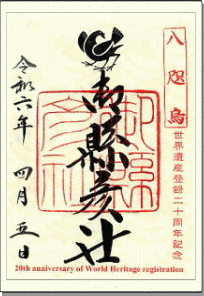 八咫烏
世界遺産登録二十周年記念
御縣彦社
御縣
彦社
令和六年
四月五日
20th anniversary of World Heritage registration